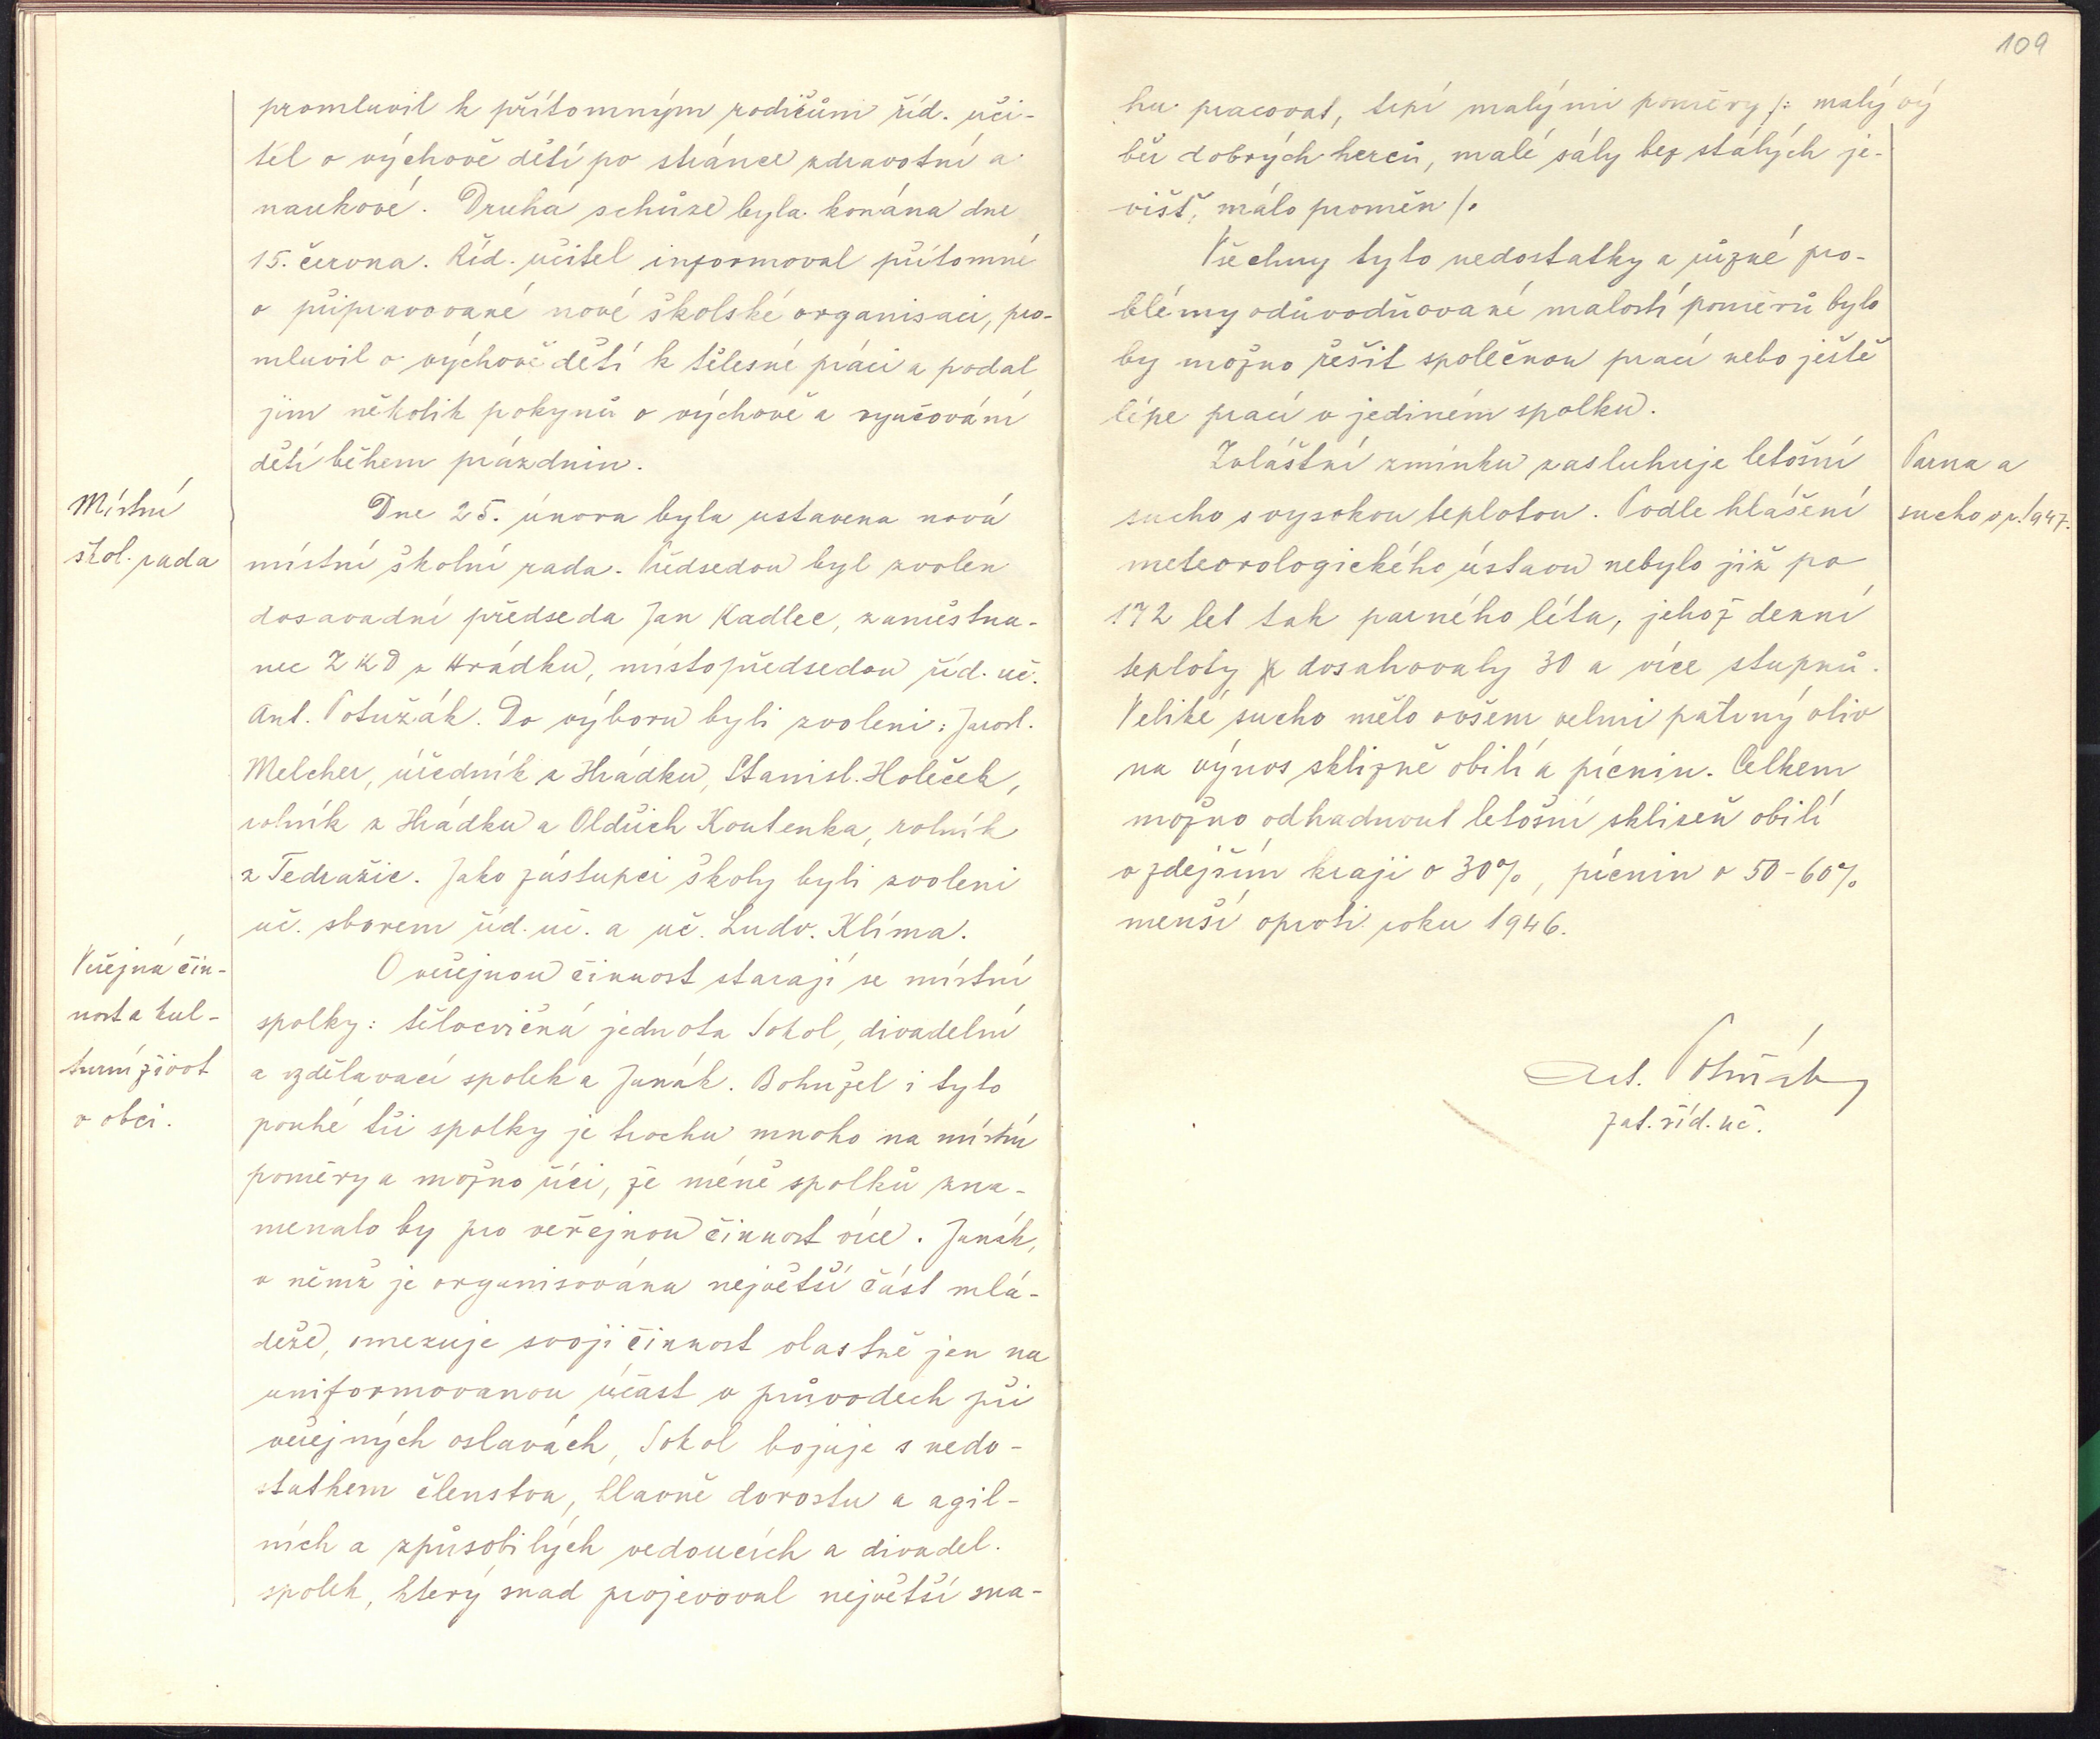 promluvil k přítomným rodičům říd. uči-
tel o výchově dětí po stránce zdravotní a
naukové. Druhá schůze byla konána dne
15. června. Říd. učitel informoval přítomné
o připravované nové školské organisaci, pro-
mluvil o výchově dětí k tělesné práci a podal
jim několik pokynů o výchově a vyučování
dětí během prázdnin.
Místní
škol. rada
Dne 25. února byla ustavena nová
místní školní rada. Předsedou byl zvolen
dosavadní předseda Jan Kadlec, zaměstna-
nec ZKD z Hrádku, místopředsedou říd. uč.
Ant. Potužák. Do výboru byli zvoleni: Jarosl.
Melcher, úředník z Hrádku, Stanisl. Holeček,
rolník z Hrádku a Oldřich Koutenka, rolník
z Tedražic. Jako zástupci školy byli zvoleni
uč. sborem říd. uč. a uč. Ludv. Klíma.
Veřejná čin-
nost a kul-
turní život
v obci.
O veřejnou činnost starají se místní
spolky: tělocvičná jednota Sokol, divadelní
a vzdělavací spolek a Junák. Bohužel i tyto
pouhé tři spolky je trochu mnoho na místní
poměry a možno říci, že méně spolků zna-
menalo by pro veřejnou činnost více. Junák,
v němž je organisována největší část mlá-
deže, omezuje svoji činnost vlastně jen na
uniformovanou účast v průvodech při
veřejných oslavách, Sokol bojuje s nedo-
statkem členstva, hlavně dorostu a agil-
ních a způsobilých vedoucích a divadel.
spolek, který snad projevoval největší sna-
109
hu pracovat, trpí malými poměry /: malý vý
běr dobrých herců, malé sály bez stálých je-
višť, málo proměn /.
Všechny tyto nedostatky a různé pro-
blémy odůvodňované malostí poměrů bylo
by možno řešit společnou prací nebo ještě
lépe prací v jediném spolku.
Parna a
sucho v r. 1947.
Zvláštní zmínku zasluhuje letošní
sucho s vysokou teplotou. Podle hlášení
meteorologického ústavu nebylo již po
172 let tak parného léta, jehož denní
teploty dosahovaly 30 a více stupnů.
Veliké sucho mělo ovšem velmi patrný vliv
na výnos sklizně obilí a pícnin. Celkem
možno odhadnout letošní sklizeň obilí
v zdejším kraji o 30%, pícnin o 50-60%
menší oproti roku 1946.
Ant. Potužák
zat. říd. uč.